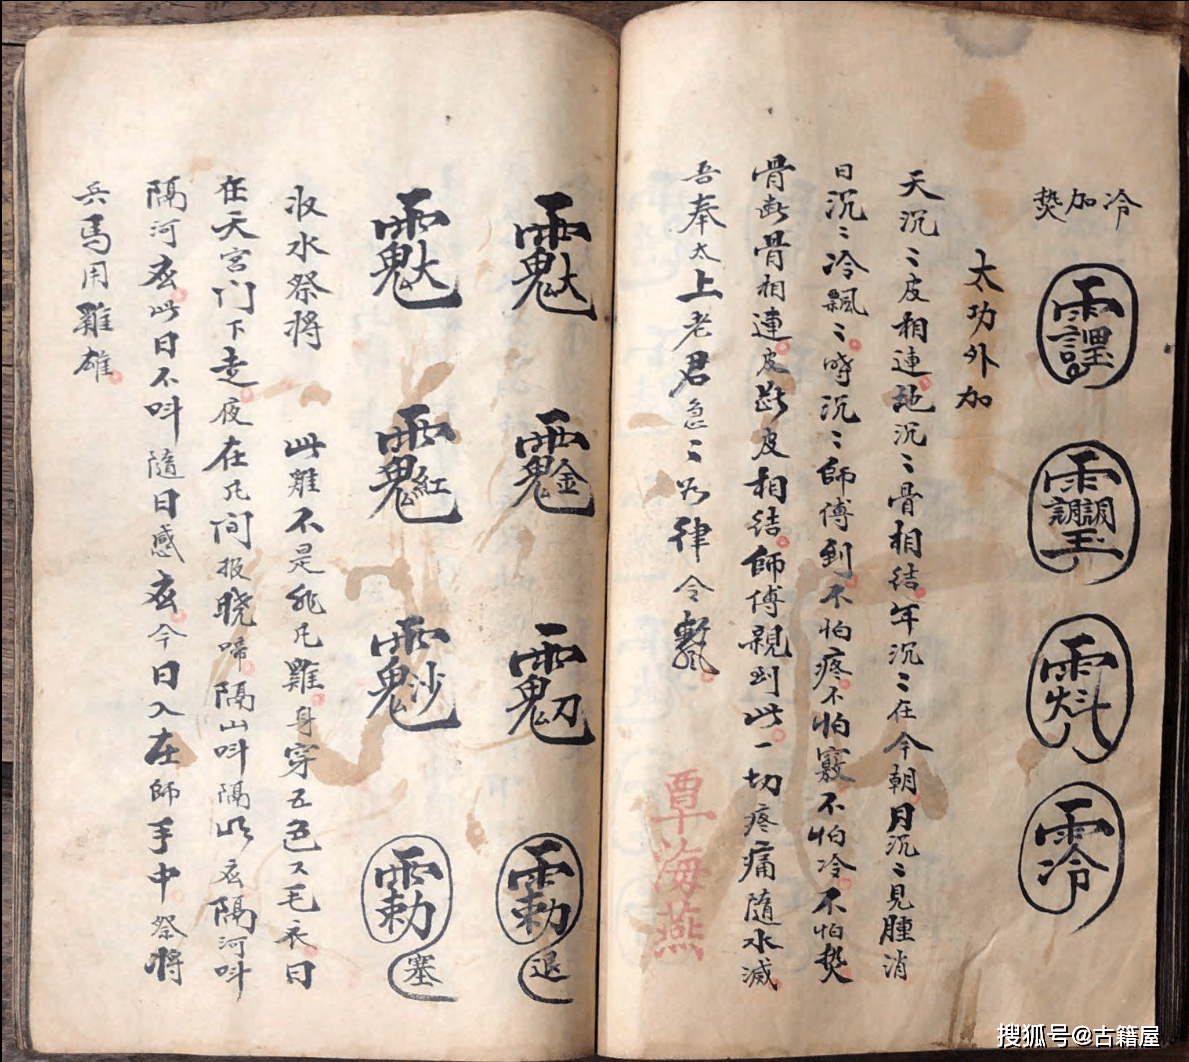 冷加熒
太功外加
天沉〻皮相連地沉〻骨相结年沉〻在今朝月沉〻見腫消
日沉〻冷飄〻時沉〻師傅到不怕疼不怕竅不怕冷不怕熒
骨断骨相連皮斷皮相结師傅親到此一切疼痛隨水減
吾奉太上老君急〻如律令
覃海燕
退
塞
收水祭将 此雞不是非凡雞身穿五色文毛衣日
在天宫门下走夜在凡间报晓啼隔山呌隔山应隔河呌
隔河应此日不呌隨日感应今日入在師手中祭将
兵馬用雞雄
搜狐号@古籍屋